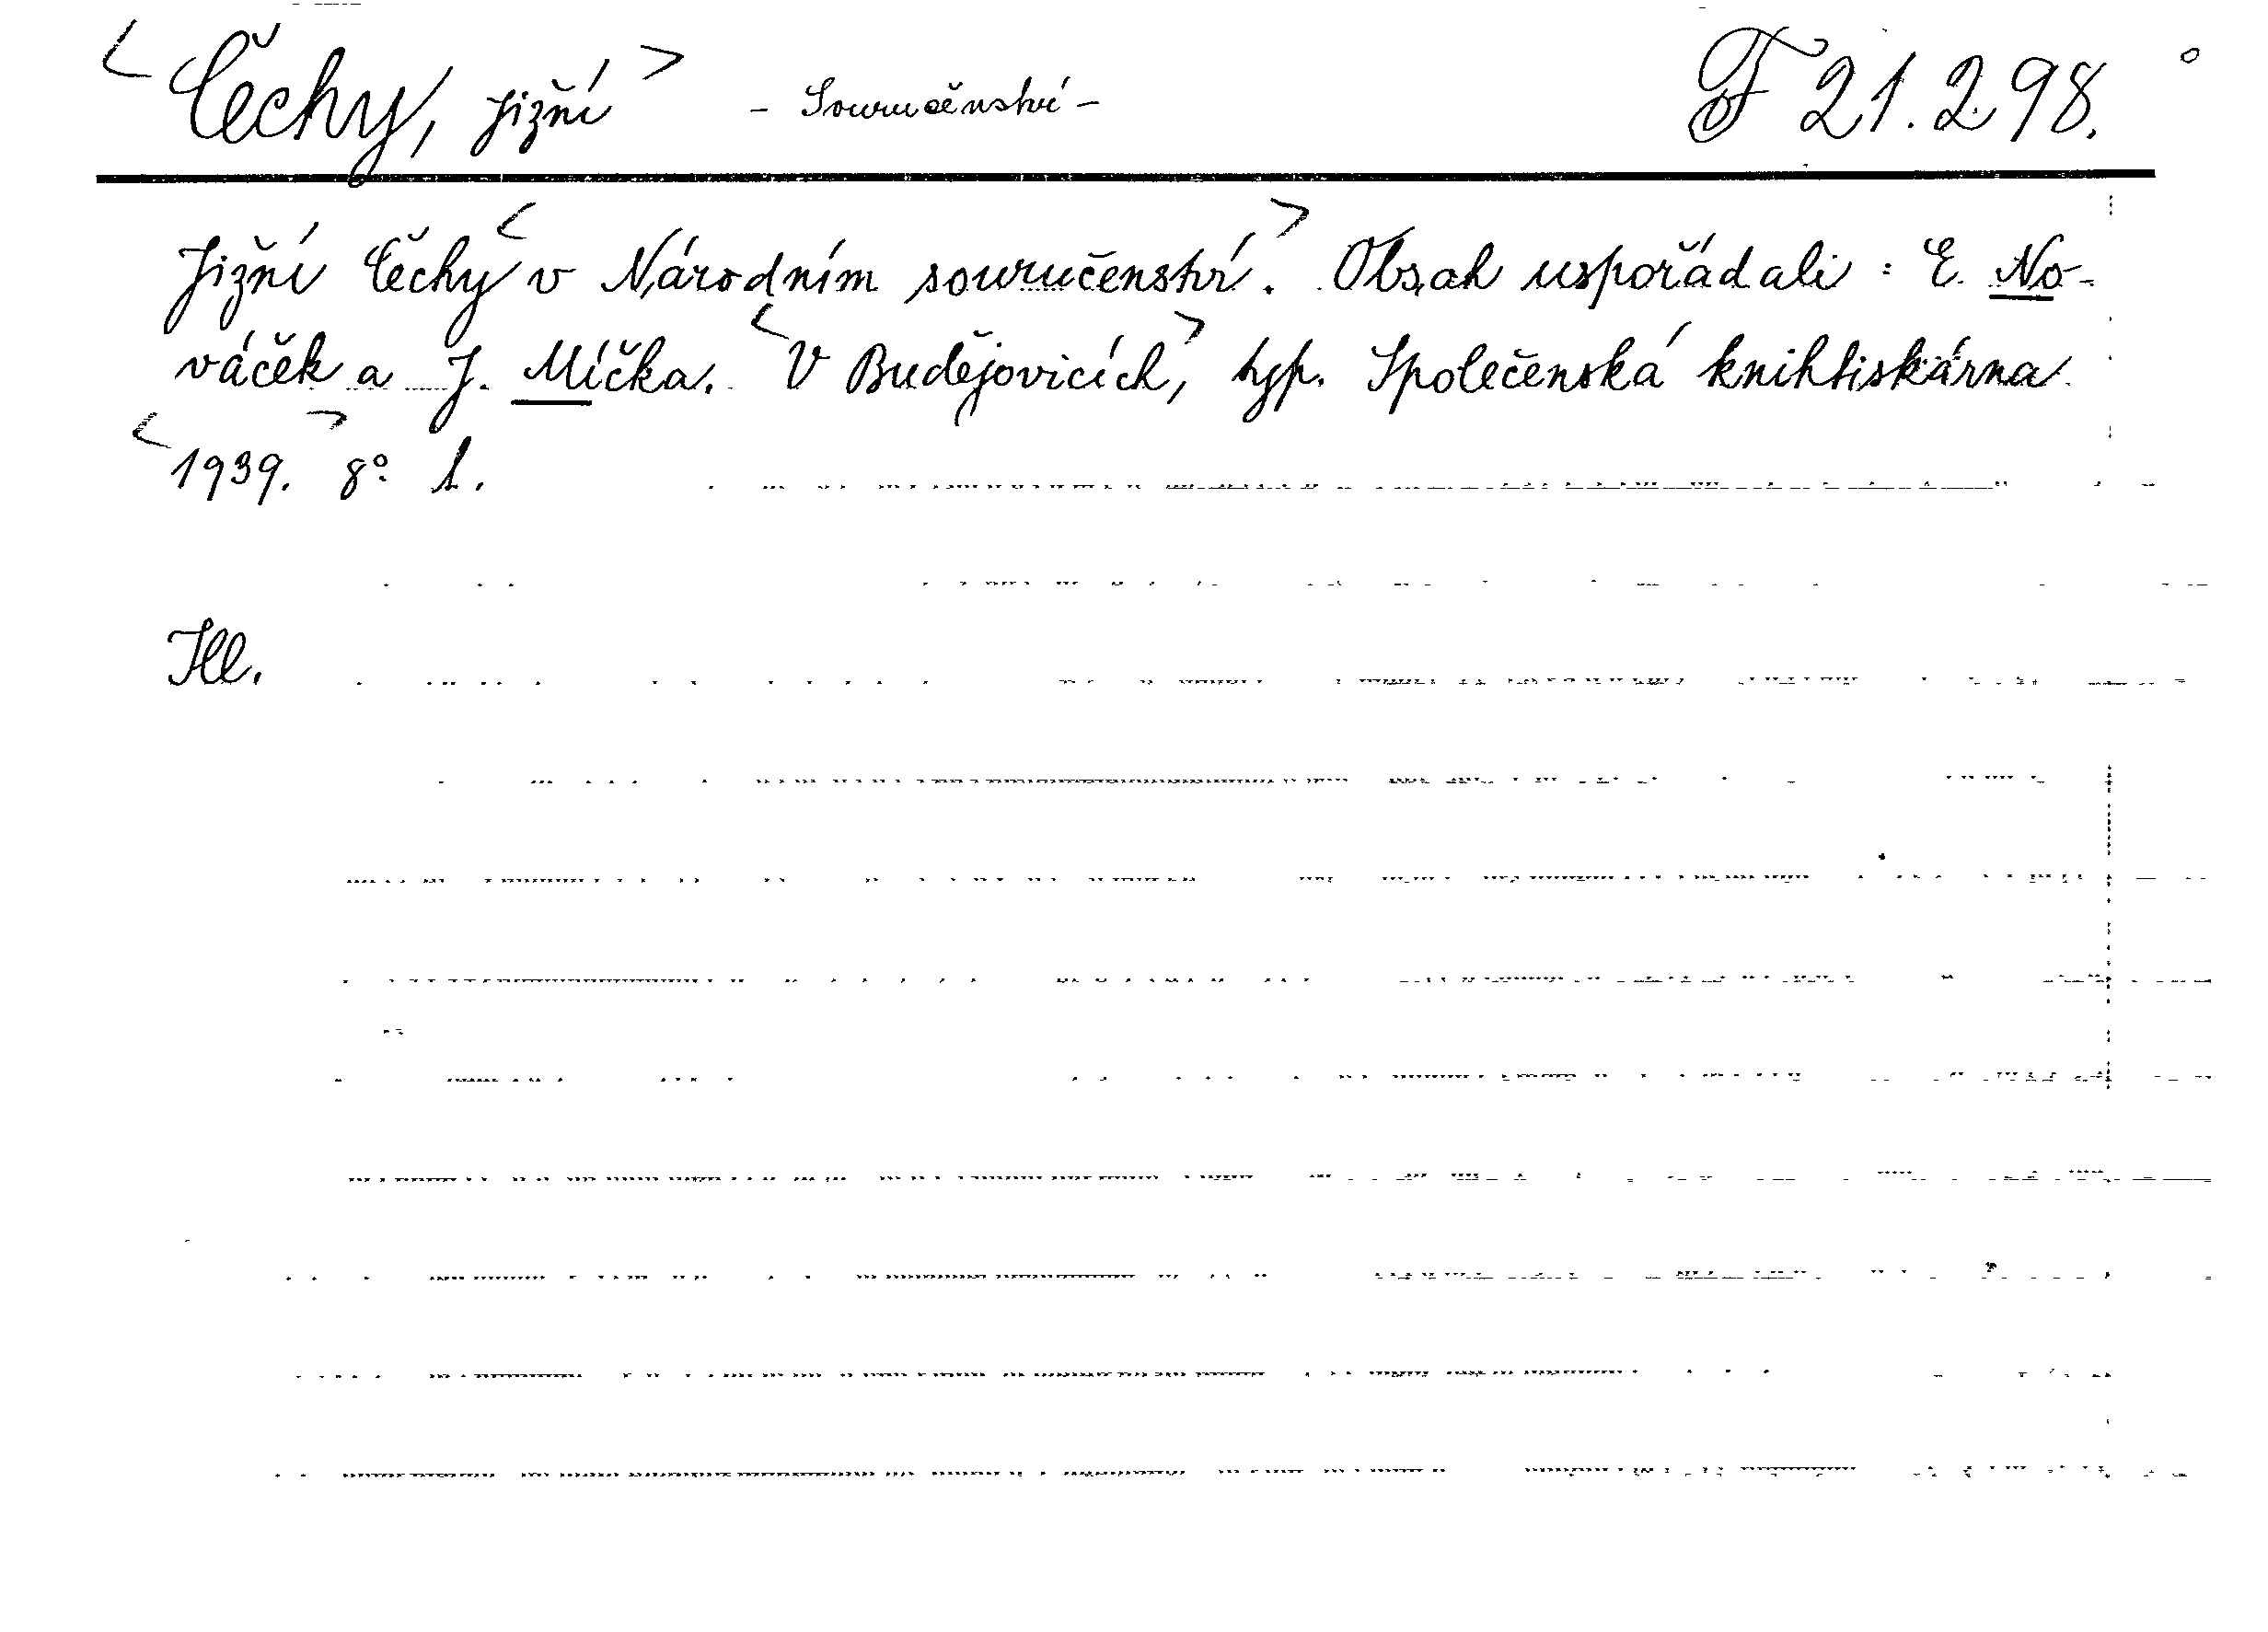 <Čechy, jižní> - Souručenství - F 21.298.
Jižní Čechy <v Národním souručenství.> Obsah uspořádali: E. No-
váček a J. Míčka. <V Budějovicích,> typ. Společenská knihtiskárna
<1939.> 8° l.
Ill.